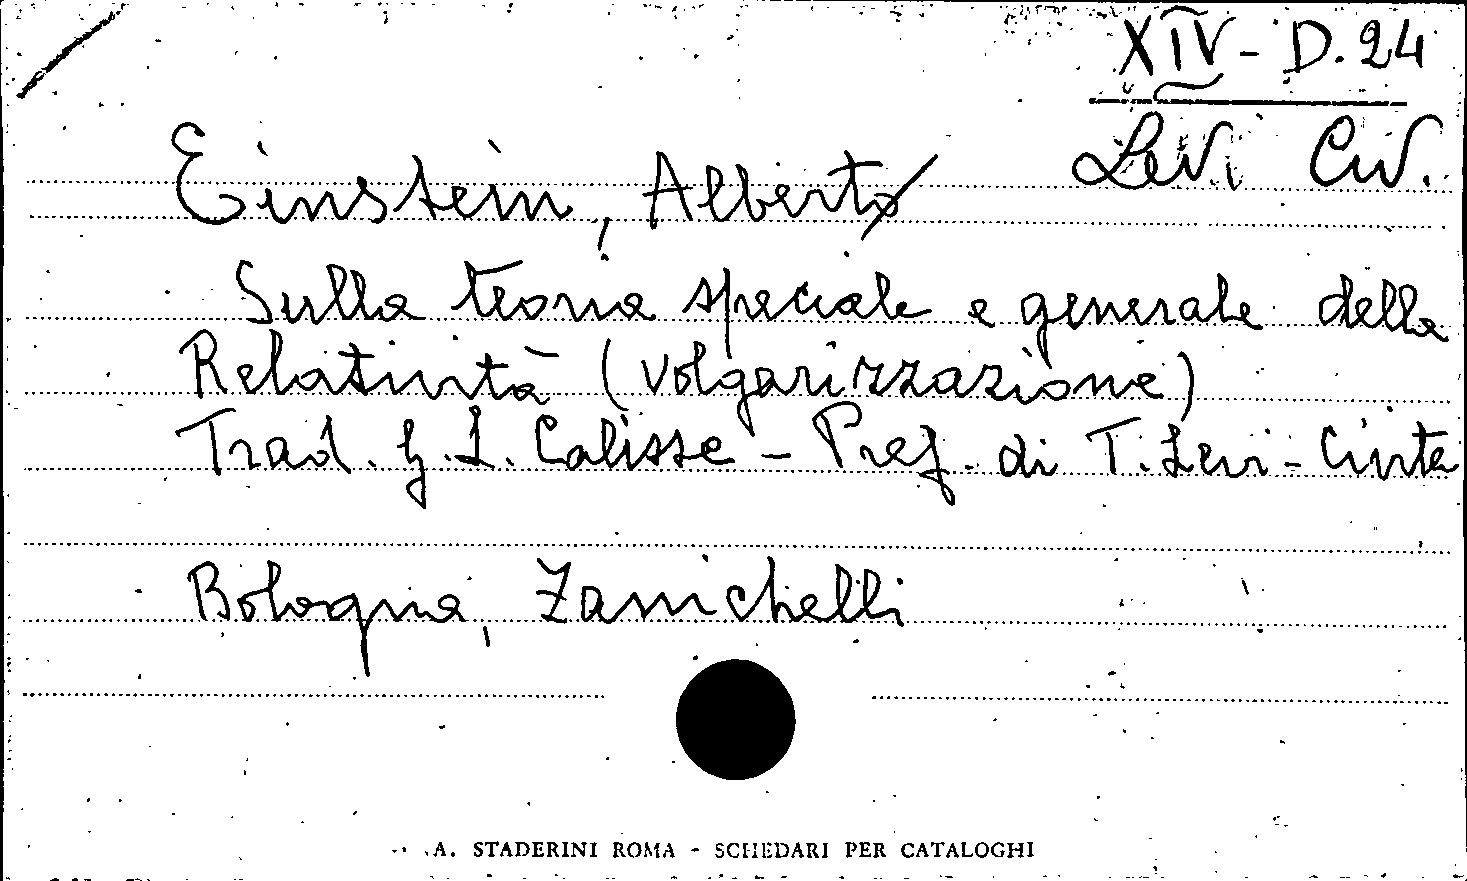 XIV - D. 24
Levi Civ.
Einstein, Alberto
Sulla teoria speciale e generale della
Relatività (volgarizzazione)
Trad. G. L. Calisse - Pref. di T. Levi-Civita
Bologna, Zanichelli
A. STADERINI ROMA - SCHEDARI PER CATALOGHI